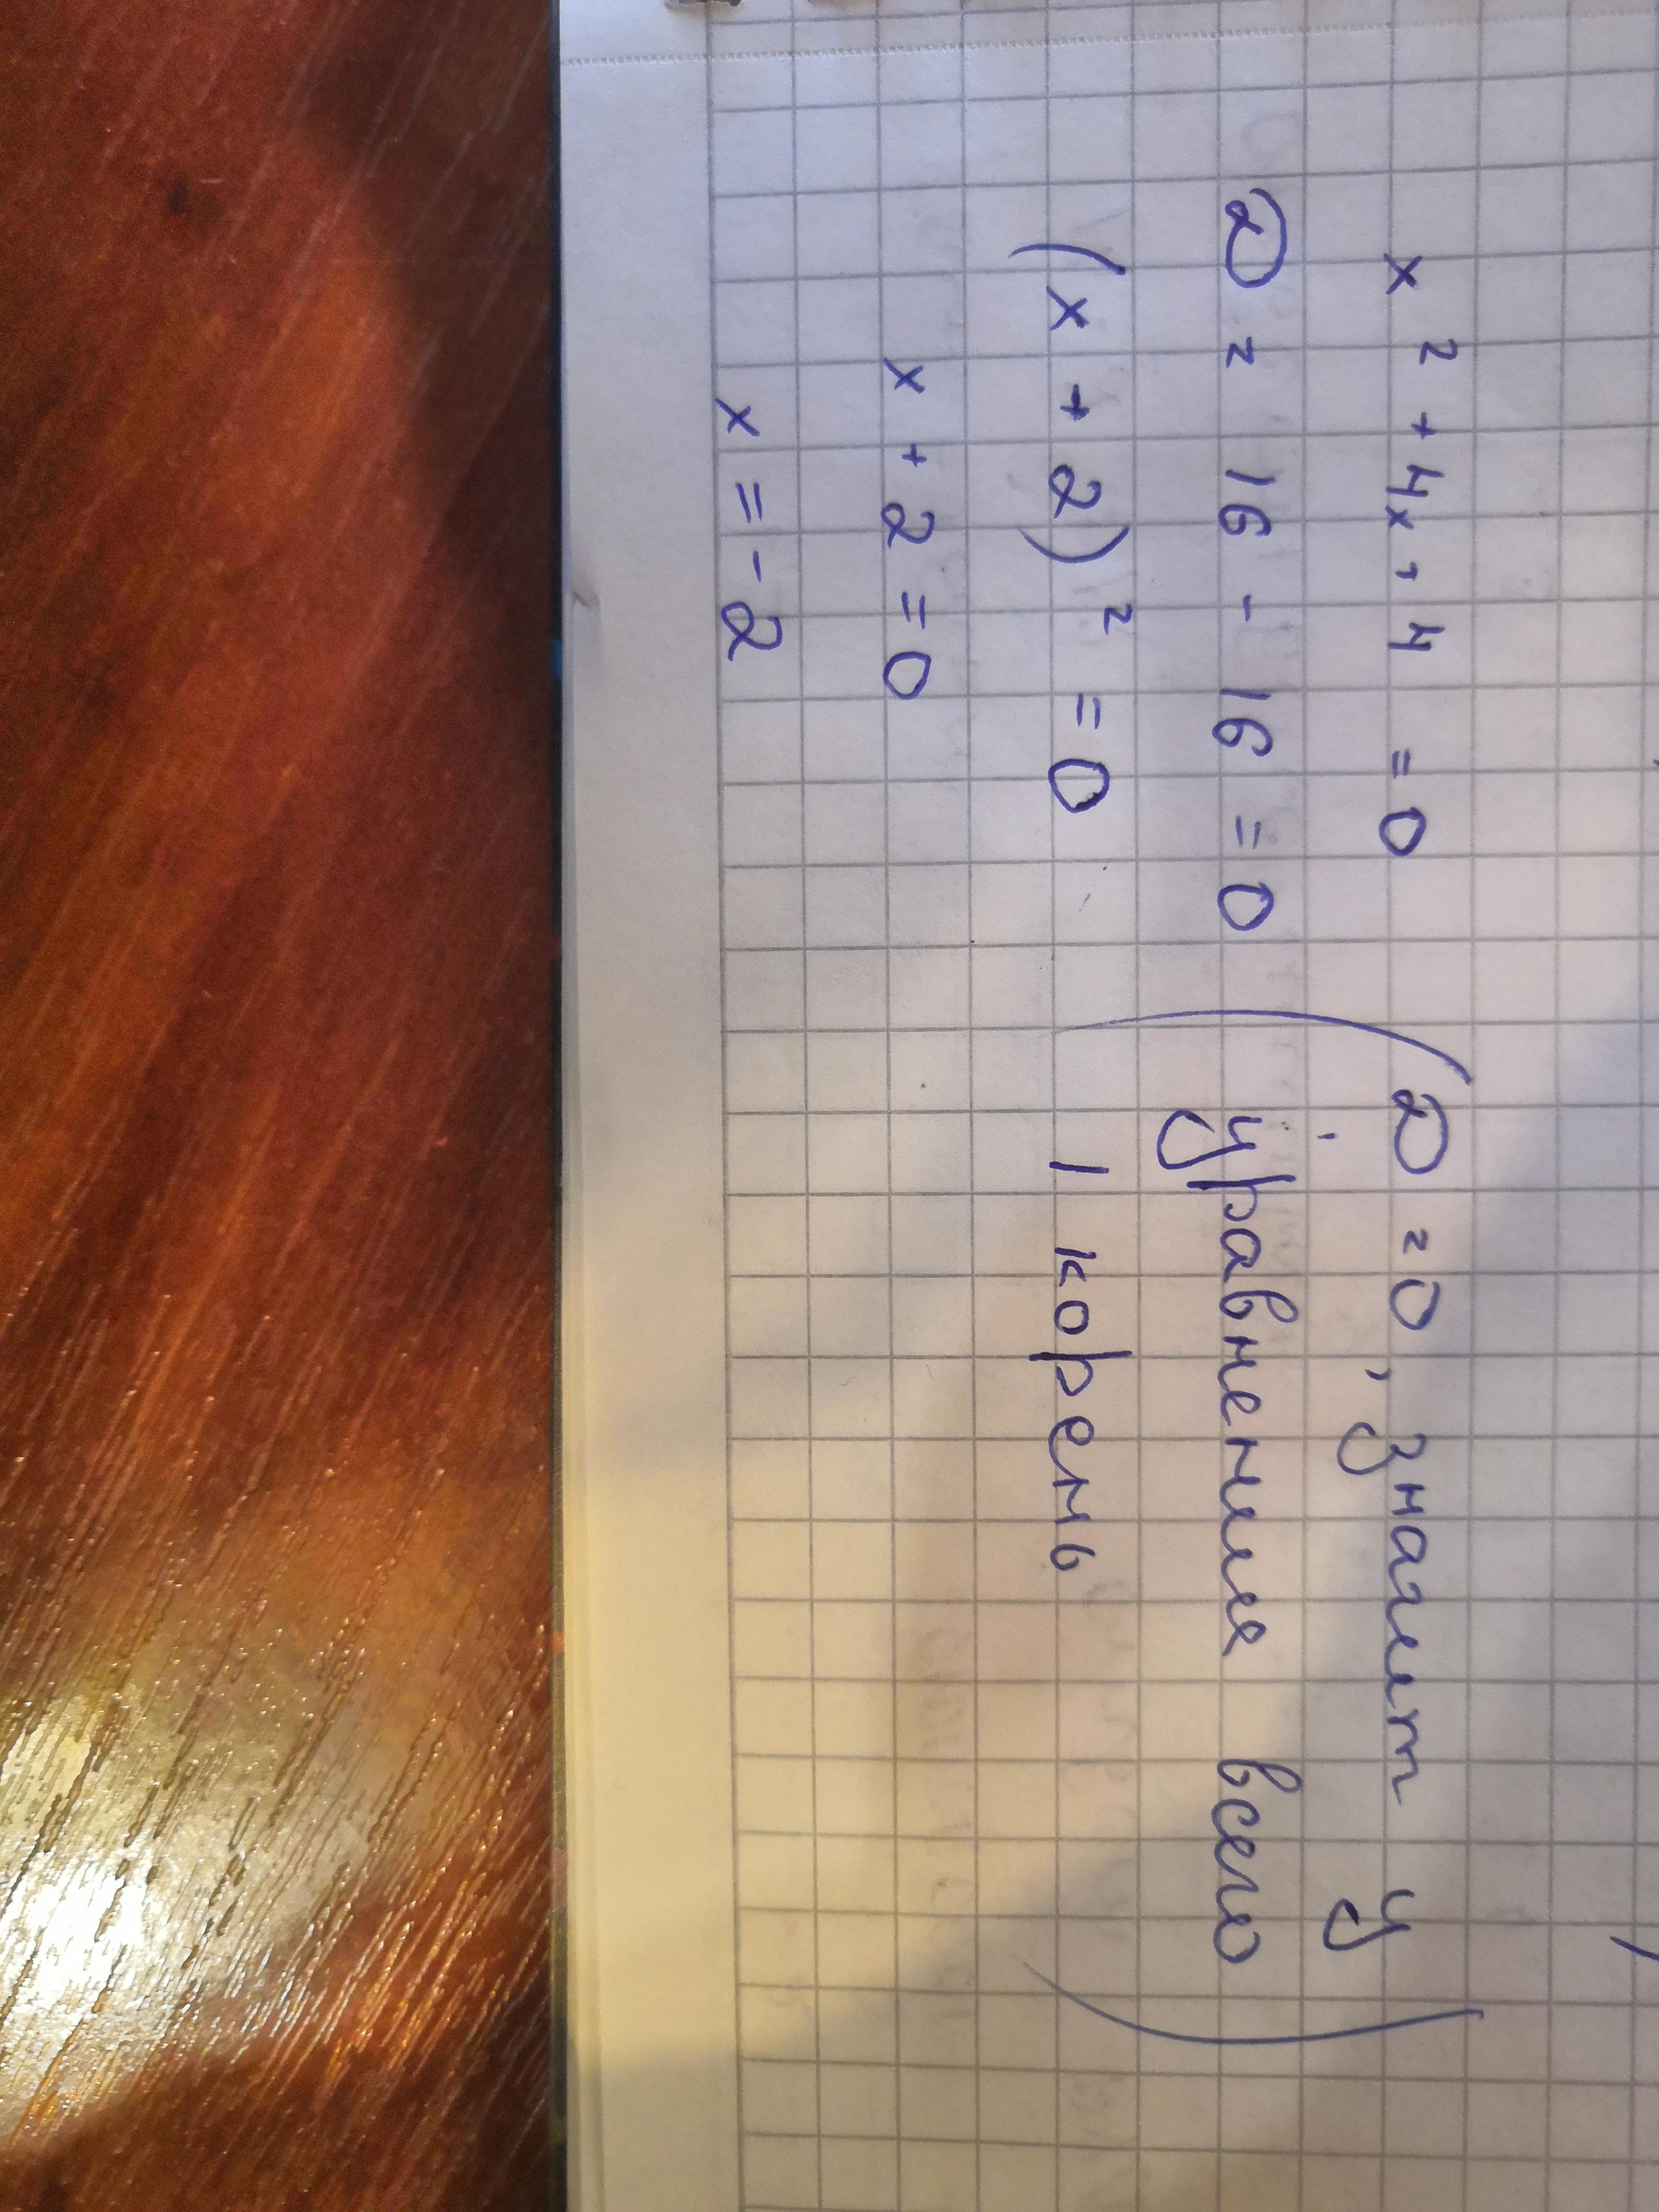 x² + 4x + 4 = 0
D = 16 - 16 = 0
(x + 2)² = 0
x + 2 = 0
x = -2
(D = 0, значит у
уравнения всего
1 корень)